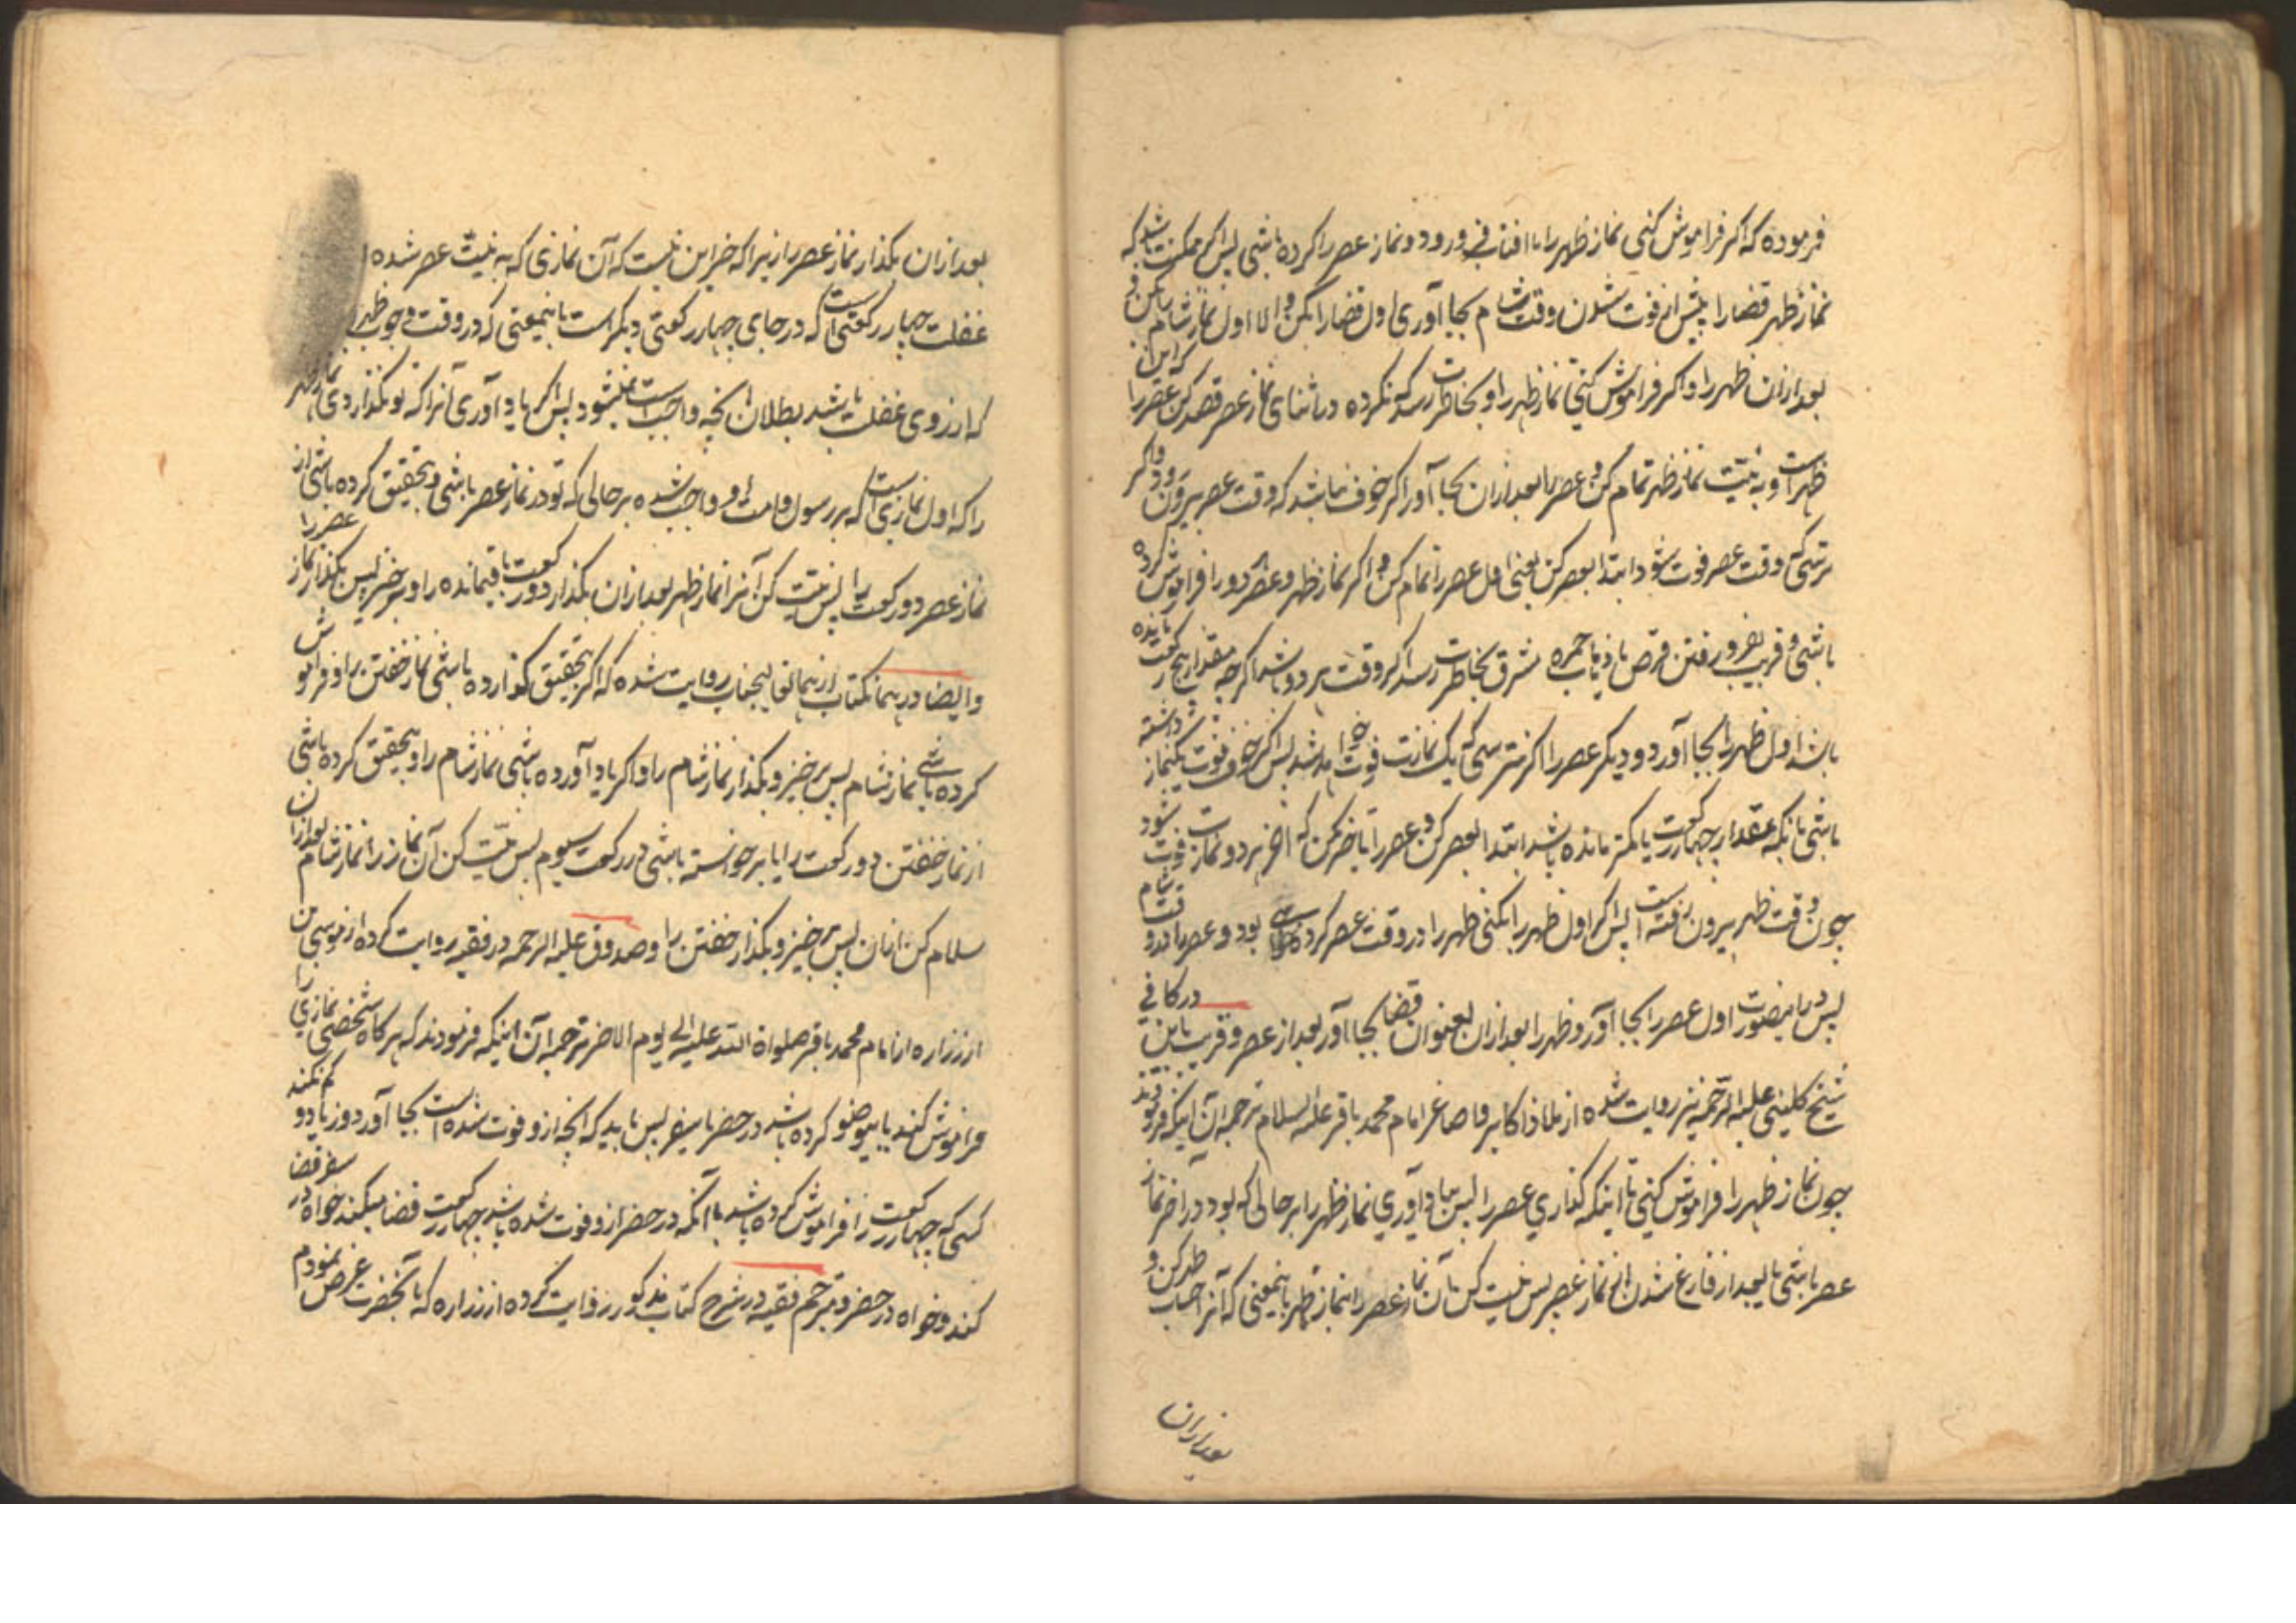 فرموده که اکر فراموش کنی نماز ظهر را تا افتاب فرو رود و نماز عصر را کرده باشی پس اکر ممکنت باشد که
نماز ظهر قضا را پیش از فوت شدن وقت شام بجا آوری اول قضا را بکن و الا اول نماز شام را بکن و
بعد از ان ظهر را و اکر فراموش کنی نماز ظهر را و بخاطرت رسد که نکرده در اثنای نماز عصر قصد کن که این عصر را
ظهر است و به نیت نماز ظهر تمام کن و عصر را بعد از ان بجا آور اکر خوف نباشد که وقت عصر بیرون رود و اکر
ترسی که وقت عصر فوت شود ابتدا بعصر کن یعنی اول عصر را تمام کن و اکر نماز ظهر و عصر هر دو را فراموش کرده
باشی و قریب بفرو رفتن قرص یا ذهاب حمره مشرق بخاطرت رسد اکر وقت هر دو باشد اکرچه مقدار پنج رکعت مانده
باشد اول ظهر را بجا آور و دیکر عصر را اکر نترسی که یک نمازت فوت خواهد شد پس اکر خوف فوت یکنماز داشته
باشی بانکه مقدار چهار رکعت یا کمتر مانده باشد ابتدا بعصر کن و عصر را تاخیر مکن که اخر هر دو نمازت فوت شود
چون وقت ظهر بیرون رفته است پس اکر اول ظهر را بکنی ظهر را در وقت عصر کرده خواهی بود و عصر را در وقت شام
پس در اینصورت اول عصر را بجا آور و ظهر را بعد از ان بعنوان قضا بجا آور بعد از عصر و قریب باین در کافی
شیخ کلینی علیه الرحمه نیز روایت شده از ملاذ اکابر و اصاغر امام محمد باقر علیه السلام ترجمه آن اینکه فرمودند
چون نماز ظهر را فراموش کنی تا اینکه کذاری عصر را پس بیاد آوری نماز ظهر را بر حالی که بود در اخر نماز
عصر باشی یا بعد از فارغ شدن از نماز عصر پس نیت کن بآن نماز عصر را نماز ظهر باینمعنی که آنرا حساب ظهر کن و
بعد از ان
بعد از ان بکذار نماز عصر را زیرا که جز این نیست که آن نمازی که به نیت عصر شده از
غفلت چهار رکعتی است که در جای چهار رکعتی دیکر است باینمعنی که در وقت وجوب ظهر
که از روی غفلت باشد بطلان انچه واجب است نمیشود پس اکر یاد آوری آنرا که تو نکذاردی نماز ظهر
را که اول نمازی است که بر رسول و امت او واجب شده بر حالی که تو در نماز عصر باشی و بتحقیق کرده باشی از
نماز عصر دو رکعت را پس نیت کن آنرا نماز ظهر بعد از ان بکذار دو رکعت باقیمانده را و برخیز پس بکذار نماز عصر را
و ایضا در همانکتاب از همانعالیجناب روایت شده که اکر بتحقیق کذارده باشی نماز خفتن را و فراموش
کرده باشی نماز شام پس برخیز و بکذار نماز شام را و اکر یاد آورده باشی نماز شام را و بتحقیق کرده باشی
از نماز خفتن دو رکعت را یا برخواسته باشی در رکعت سیوم پس نیت کن آن نماز را نماز شام بعد از ان
سلام کن از ان پس برخیز و بکذار خفتن را و صدوق علیه الرحمه در فقیه روایت کرده از موسی بن
از زراره از امام محمد باقر صلواة الله علیه الی یوم الاخر ترجمه آن اینکه فرمودند که هر کاه شخصی نمازی را
فراموش کند یا بیوضو کرده باشد در حضر یا سفر پس باید که انچه از و فوت شده است بجا آورد و زیاد و کم نکند
کسی که چهار رکعت را فراموش کرده باشد با آنکه در حضر از و فوت شده باشد چهار رکعت قضا میکند خواه در سفر قضا
کند و خواه در حضر و مترجم فقیه در شرح کتاب مذکور روایت کرده از زراره که بآنحضرت عرض نمودم